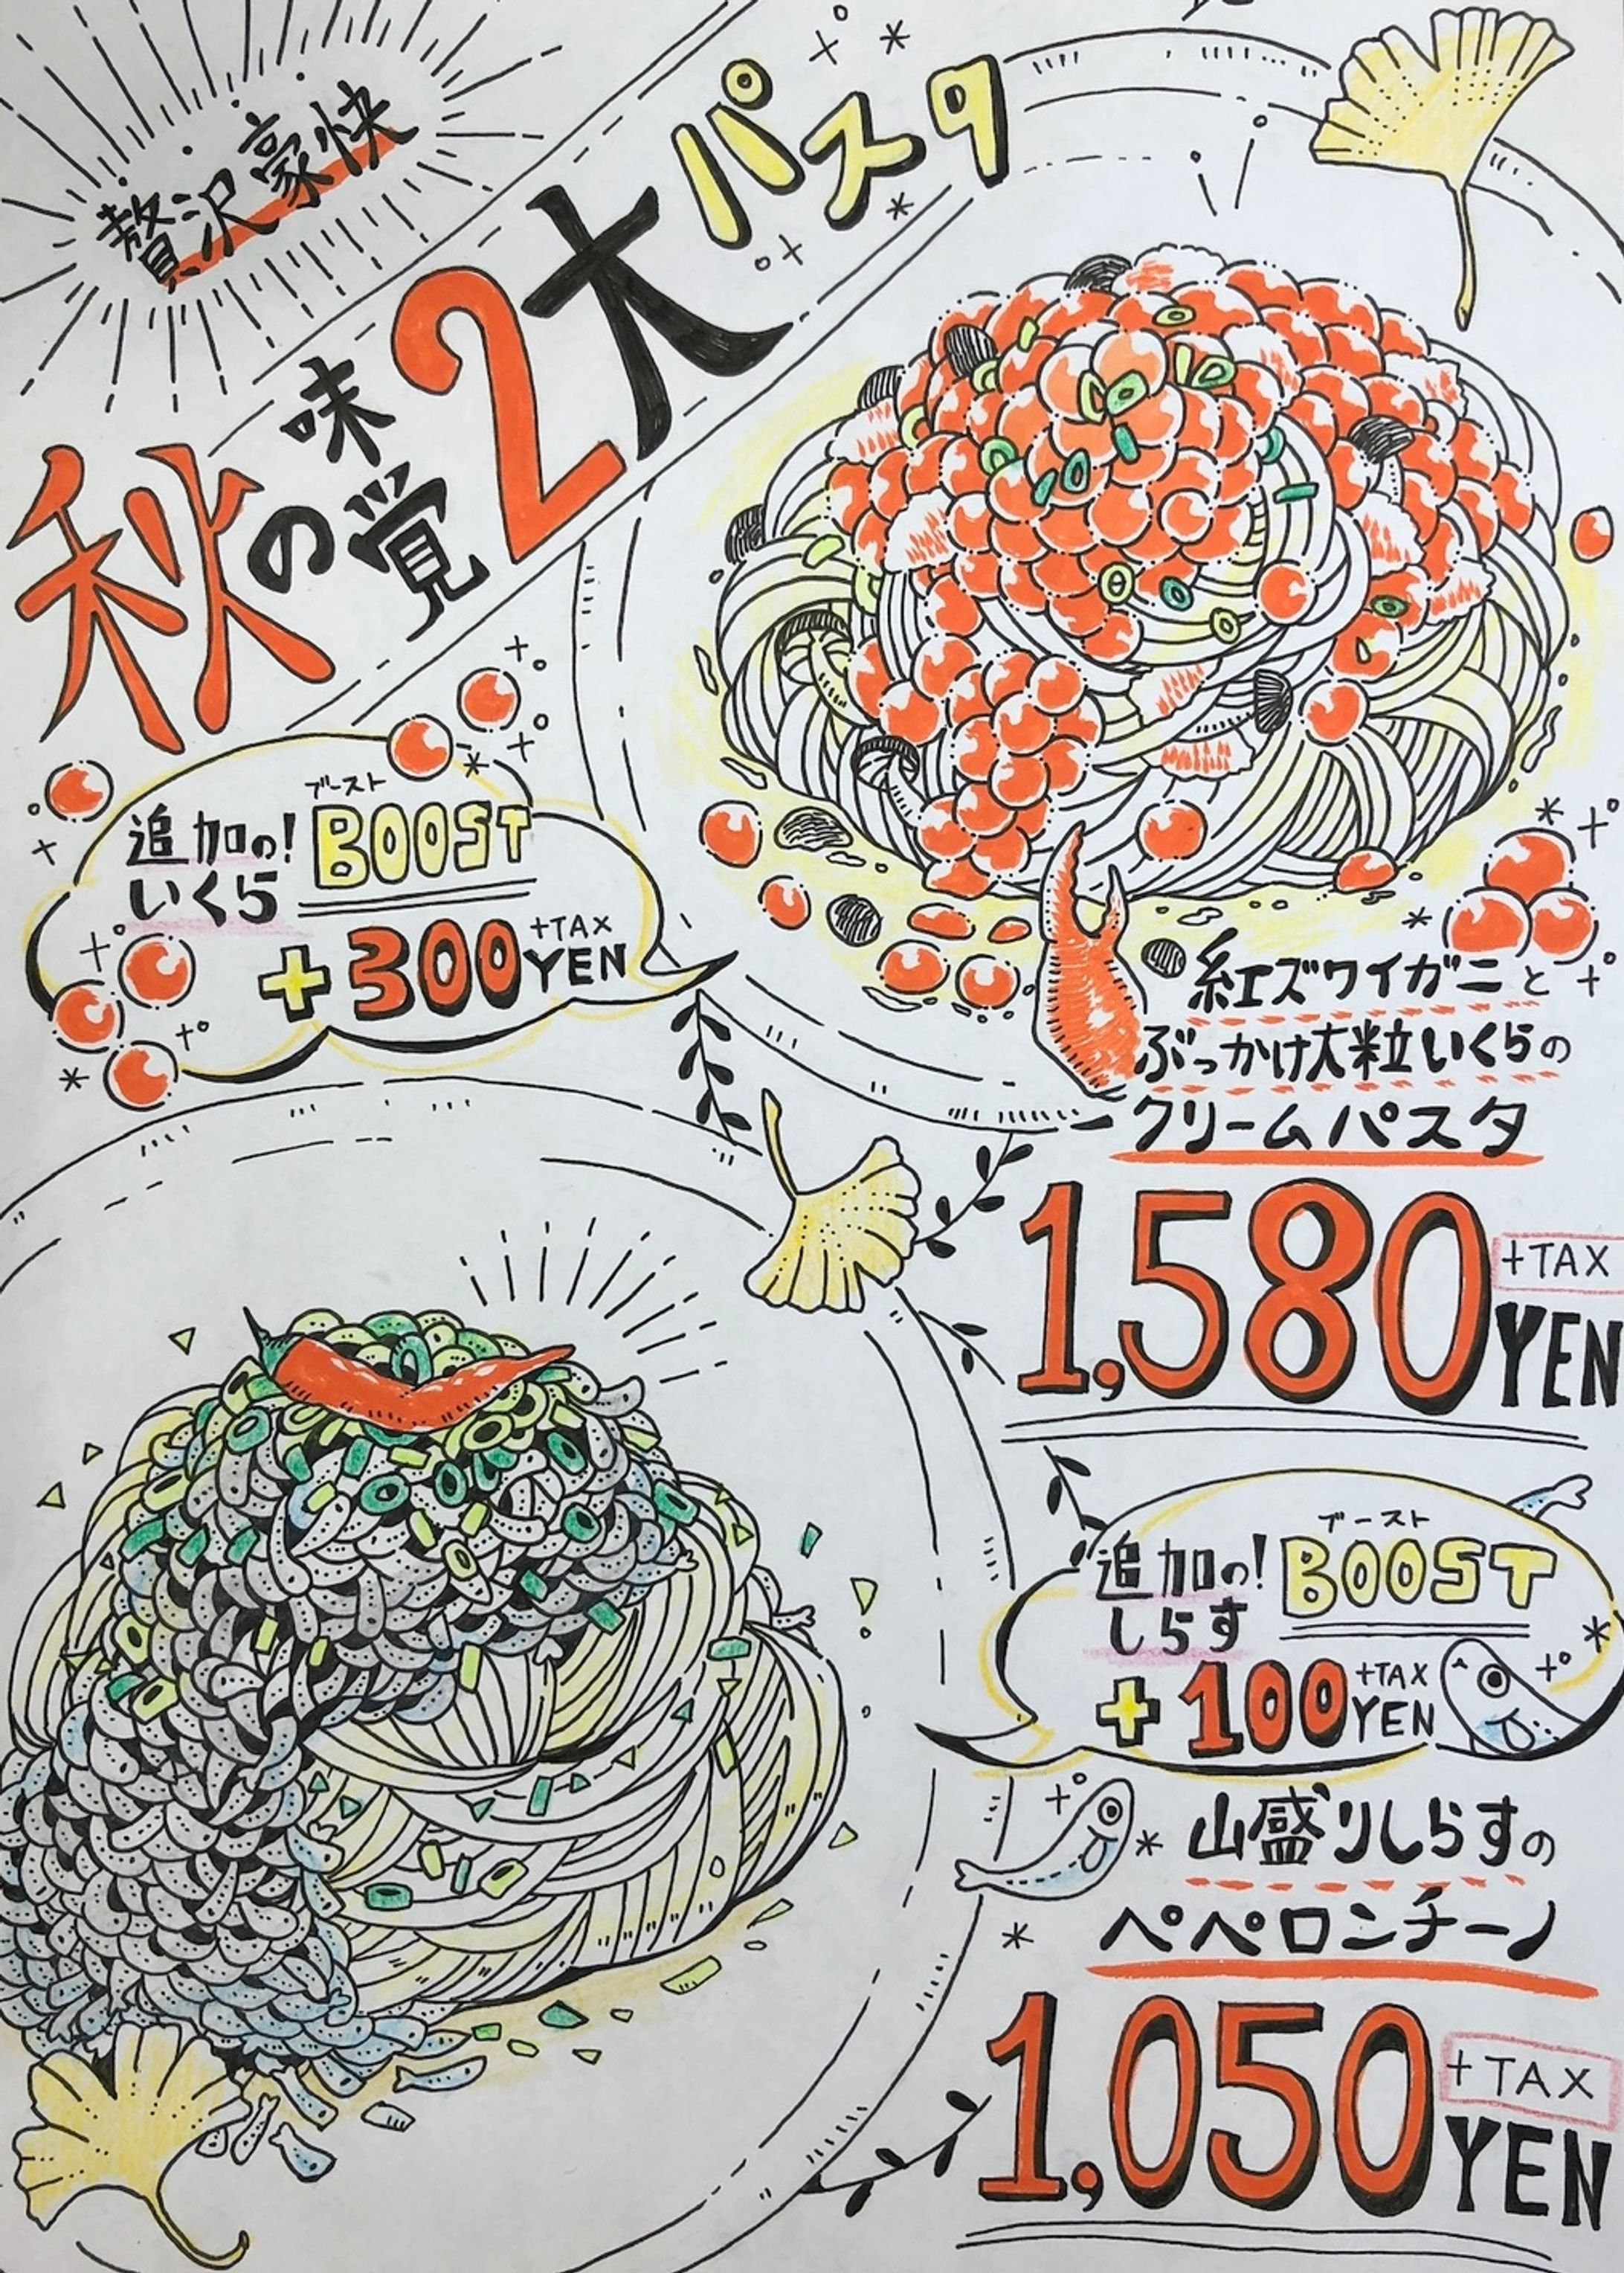 贅沢豪快
秋の味覚2大パスタ
追加の!
いくら
ブースト
BOOST
+300
+TAX
YEN
紅ズワイガニと
ぶっかけ大粒いくらの
クリームパスタ
1,580
+TAX
YEN
追加の!
しらす
ブースト
BOOST
+100
+TAX
YEN
山盛りしらすの
ペペロンチーノ
1,050
+TAX
YEN